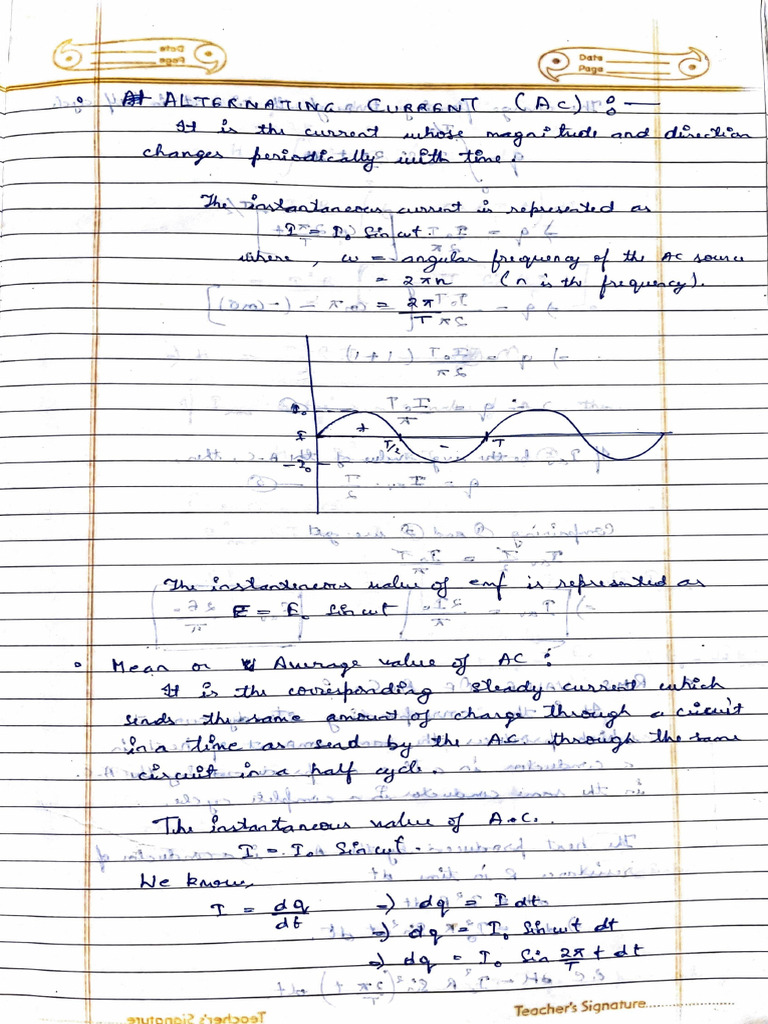 Date
Page
• ALTERNATING CURRENT (AC) : —
It is the current whose magnitude and direction
changes periodically with time.
The instantaneous current is represented as
I = I₀ Sin ωt.
where, ω = angular frequency of the AC source
= 2πn (n is the frequency).
= 2π/T
I₀
I
-I₀
+
T/2
-
T
The instanteneous value of emf is represented as
E = E₀ Sin ωt
• Mean or Average value of AC :
It is the corresponding steady current which
sends the same amount of charge through a circuit
in a time as send by the A.C. through the same
circuit in a half cycle.
The instantaneous value of A.C.
I = I₀ Sin ωt.
We know,
I = dq/dt ⇒ dq = I dt
⇒ dq = I₀ Sin ωt dt
⇒ dq = I₀ Sin 2π/T t dt
Teacher's Signature